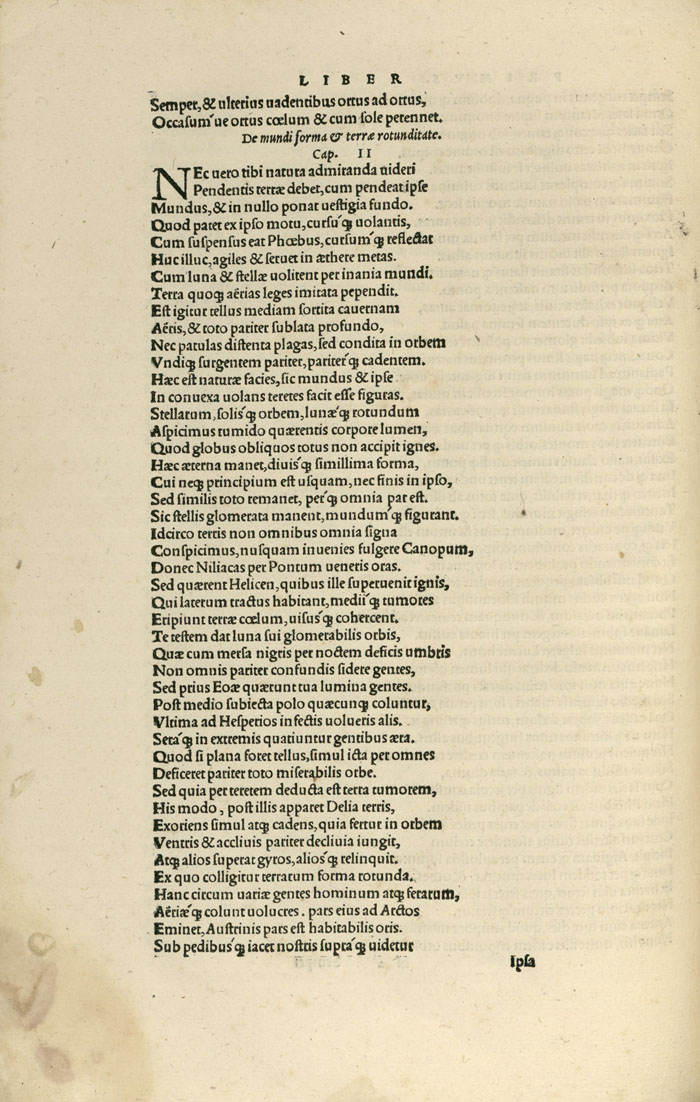 LIBER
Semper, & ulterius uadentibus ortus ad ortus,
Occasum´ue ortus cœlum & cum sole perennet.
De mundi forma & terræ rotunditate.
Cap. II
NEc uero tibi natura admiranda uideri
Pendentis terræ debet, cum pendeat ipse
Mundus, & in nullo ponat uestigia fundo.
Quod patet ex ipso motu, cursu´qꝫ uolantis,
Cum suspensus eat Phœbus, cursum´qꝫ reflectat
Huc illuc, agiles & seruet in æthere metas.
Cum luna & stellæ uolitent per inania mundi.
Terra quoqꝫ aërias leges imitata pependit.
Est igitur tellus mediam sortita cauernam
Aëris, & toto pariter sublata profundo,
Nec patulas distenta plagas, sed condita in orbem
Vndiqꝫ surgentem pariter, pariter´qꝫ cadentem.
Hæc est naturæ facies, sic mundus & ipse
In conuexa uolans teretes facit esse figuras.
Stellarum, solis´qꝫ orbem, lunæ´qꝫ rotundum
Aspicimus tumido quærentis corpore lumen,
Quod globus obliquos totus non accipit ignes.
Hæc æterna manet, diuis´qꝫ simillima forma,
Cui neqꝫ principium est usquam, nec finis in ipso,
Sed similis toto remanet, per´qꝫ omnia par est.
Sic stellis glomerata manent, mundum´qꝫ figurant.
Idcirco terris non omnibus omnia signa
Conspicimus, nusquam inuenies fulgere Canopum,
Donec Niliacas per Pontum ueneris oras.
Sed quærent Helicen, quibus ille superuenit ignis,
Qui laterum tractus habitant, medii´qꝫ tumores
Eripiunt terræ cœlum, uisus´qꝫ cohercent.
Te testem dat luna sui glomerabilis orbis,
Quæ cum mersa nigris per noctem deficis umbris
Non omnis pariter confundis sidere gentes,
Sed prius Eoæ quærunt tua lumina gentes.
Post medio subiecta polo quæcunqꝫ coluntur,
Vltima ad Hesperios infectis uolueris alis.
Sera´qꝫ in extremis quatiuntur gentibus æra.
Quod si plana foret tellus, simul icta per omnes
Deficeret pariter toto miserabilis orbe.
Sed quia per teretem deducta est terra tumorem,
His modo, post illis apparet Delia terris,
Exoriens simul atqꝫ cadens, quia fertur in orbem
Ventris & acclivis pariter decliuia iungit,
Atqꝫ alios superat gyros, alios´qꝫ relinquit.
Ex quo colligitur terrarum forma rotunda.
Hanc circum uariæ gentes hominum atqꝫ ferarum,
Aëriæ´qꝫ colunt uolucres. pars eius ad Arctos
Eminet, Austrinis pars est habitabilis oris.
Sub pedibus´qꝫ iacet nostris supra´qꝫ uidetur
Ipsa